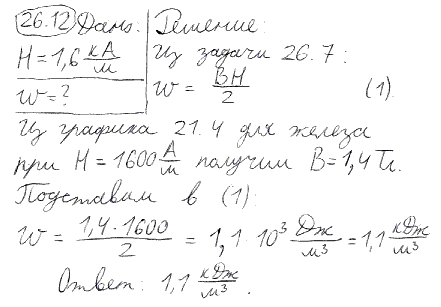 26.12 Дано: Решение:
H = 1,6 кА/м Из задачи 26.7:
w = ? w = BH/2 (1).
Из графика 21.4 для железа
при H = 1600 А/м получим B = 1,4 Тл.
Подставим в (1):
w = 1,4 · 1600/2 = 1,1 · 10³ Дж/м³ = 1,1 кДж/м³
Ответ: 1,1 кДж/м³.